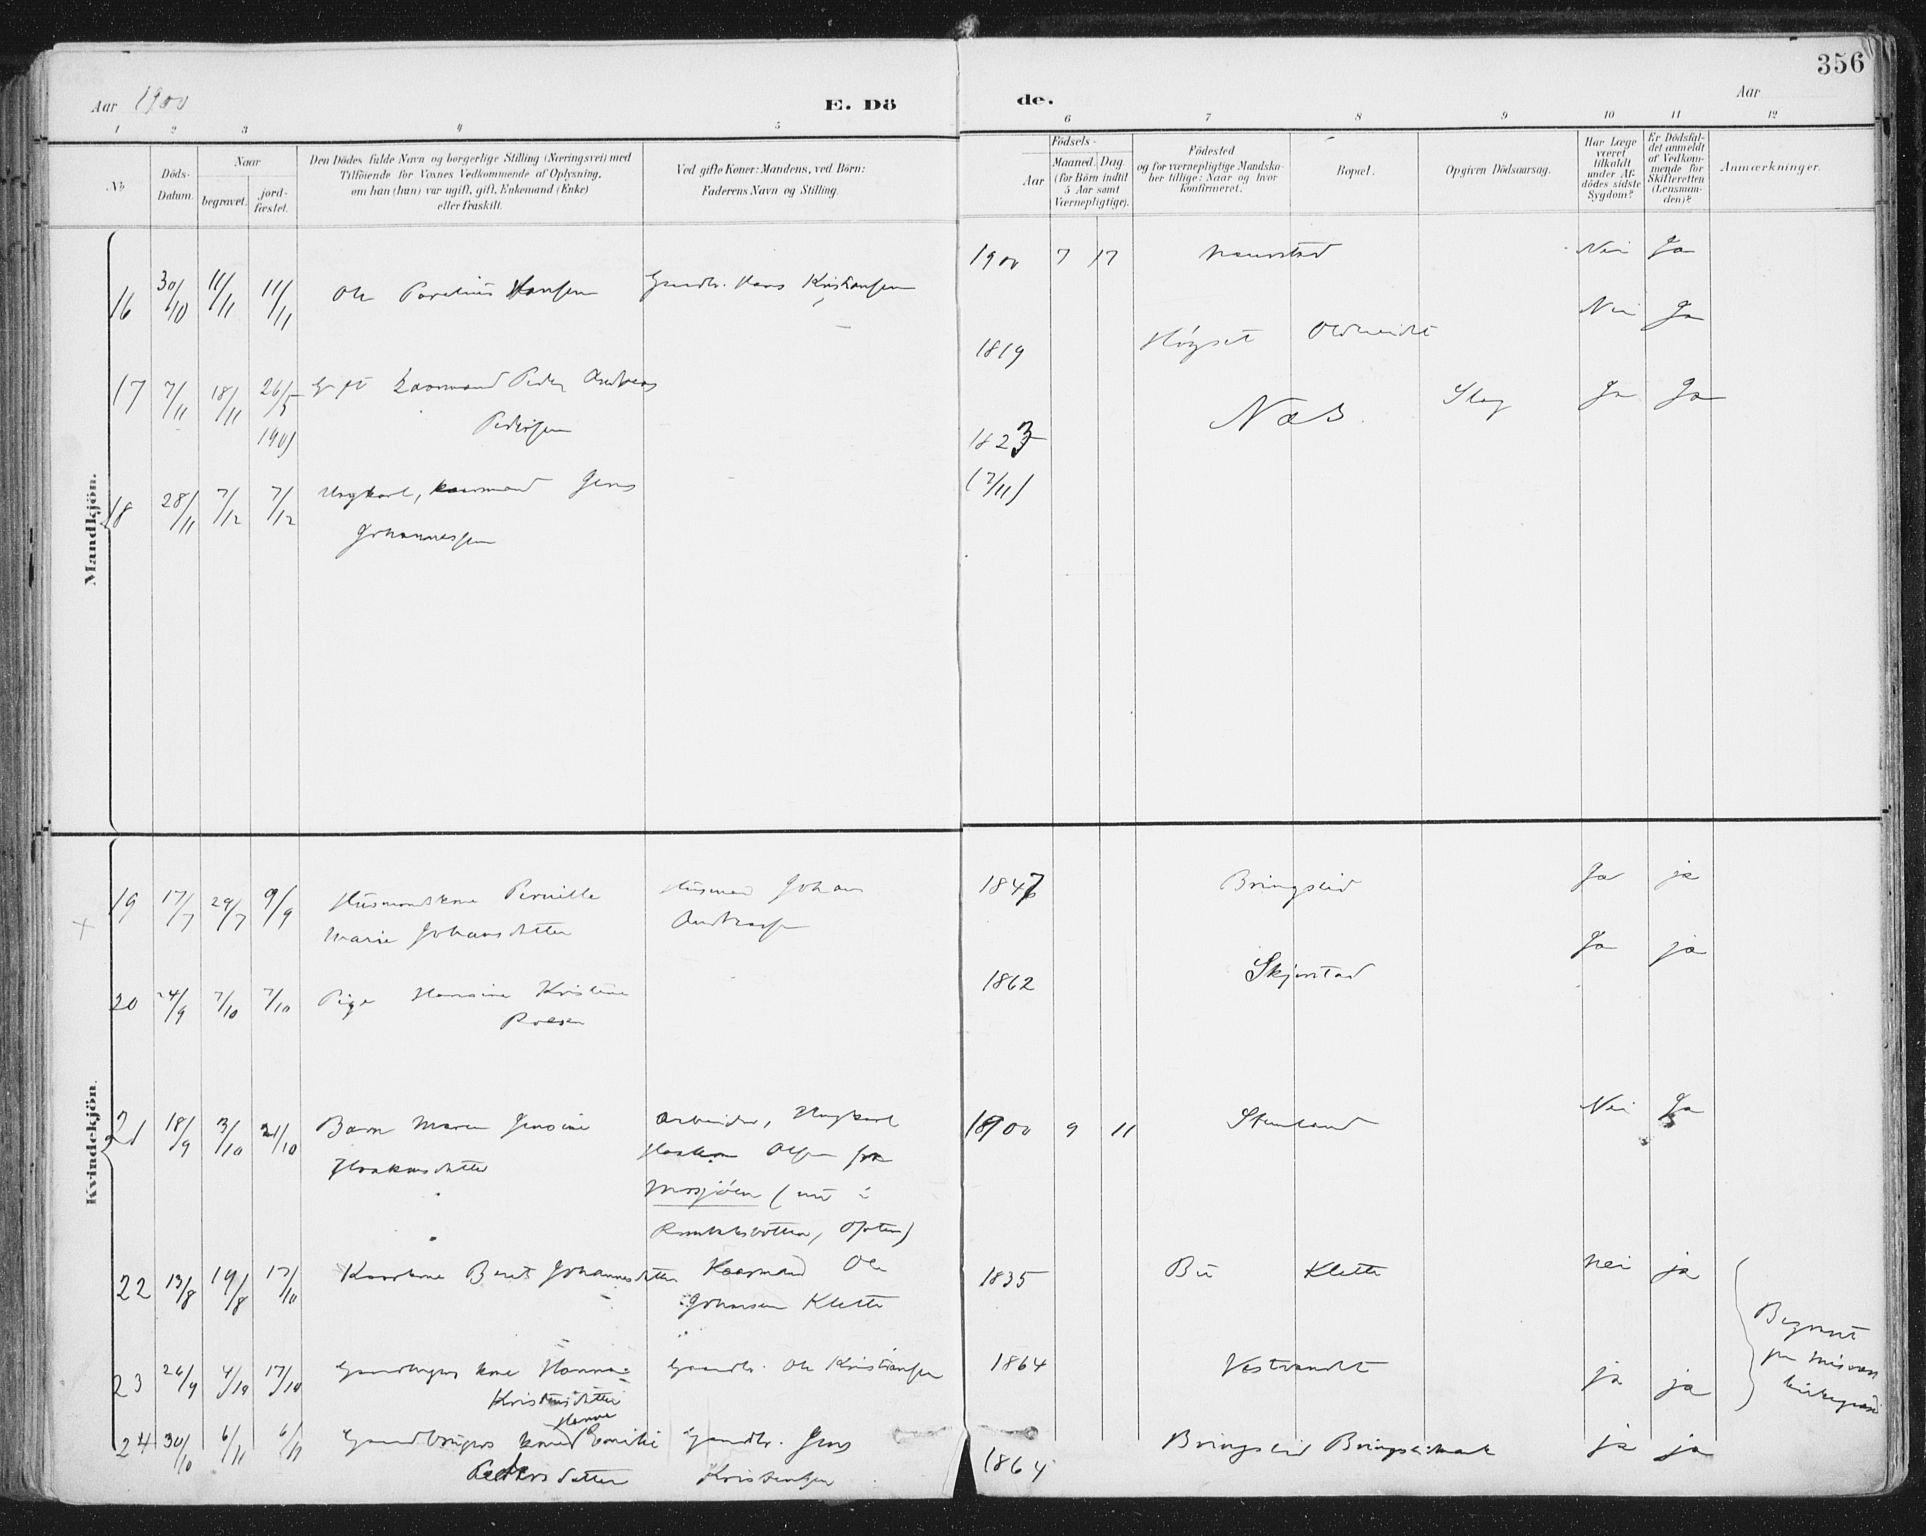 356
Aar 1900
E. Dö
de.
Aar
1 2 3 4 5 6 7 8 9 10 11 12
No
Döds-
Datum.
Naar
begravet.
jord-
fæstet.
Den Dödes fulde Navn og borgerlige Stilling (Næringsvei) med
Tilföiende for Voxnes Vedkommende af Oplysning,
om han (hun) var ugift, gift, Enkemand (Enke)
eller fraskilt.
Ved gifte Koner: Mandens, ved Börn:
Faderens Navn og Stilling.
Födsels-
Aar
Maaned. Dag
(for Börn indtil
5 Aar samt
Værnepligtige).
Födested
og for værnepligtige Mandska-
ber tillige: Naar og hvor
konfirmeret.
Bopæl.
Opgiven Dödsaarsag.
Har Læge
været
tilkaldt
under Af-
dödes sidste
Sygdom?
Er Dödsfal-
det anmeldt
af Vedkom-
mende for
Skifteretten
(Lensman-
den)?
Anmærkninger.
Mandkjön.
16 30/10 11/11 11/11 Ole Hansen Gaardbr. Hans Kristiansen 1900 7 17 Nei Ja
17 7/11 18/11 26/5 Gift Peder Andreas 1819 Høgset Nei Ja
1901 Pedersen
18 28/11 7/12 7/12 Ungkarl, Jens 1823 Næs Slag Ja Ja
Johannessen (7/11)
Kvindekjön.
19 17/7 29/7 9/9 Husmandskone Pernille Husmand Johan 1847 Bringslid Ja ja
Marie Johansdatter
20 24/9 7/10 7/10 Pige Hansine Kristine 1862 Skjerstad Ja ja
21 18/9 3/10 21/10 Barn Maren Jensine Arbeider, Ungkarl 1900 9 11 Stenland Nei Ja
Haakonsdatter Haakon Olsen fra
Mosjøen (nu i
Ofoten)
22 13/8 19/8 17/10 Berit Johannesdatter Ole 1835 Bu Klette Nei ja
Johansen Klette
23 26/9 4/10 17/10 Gaardbrugers kone Hanna Gaardbr. Ole Kristiansen 1864 Vestvandet ja ja
Kristensdatter
24 30/10 6/11 6/11 Gaardbrugers kone Emilie Gaardbr. Jens 1864 Bringslid ja ja
Hanna
Pedersdatter Kristensen
Begravet
paa Misvær
kirkegaard